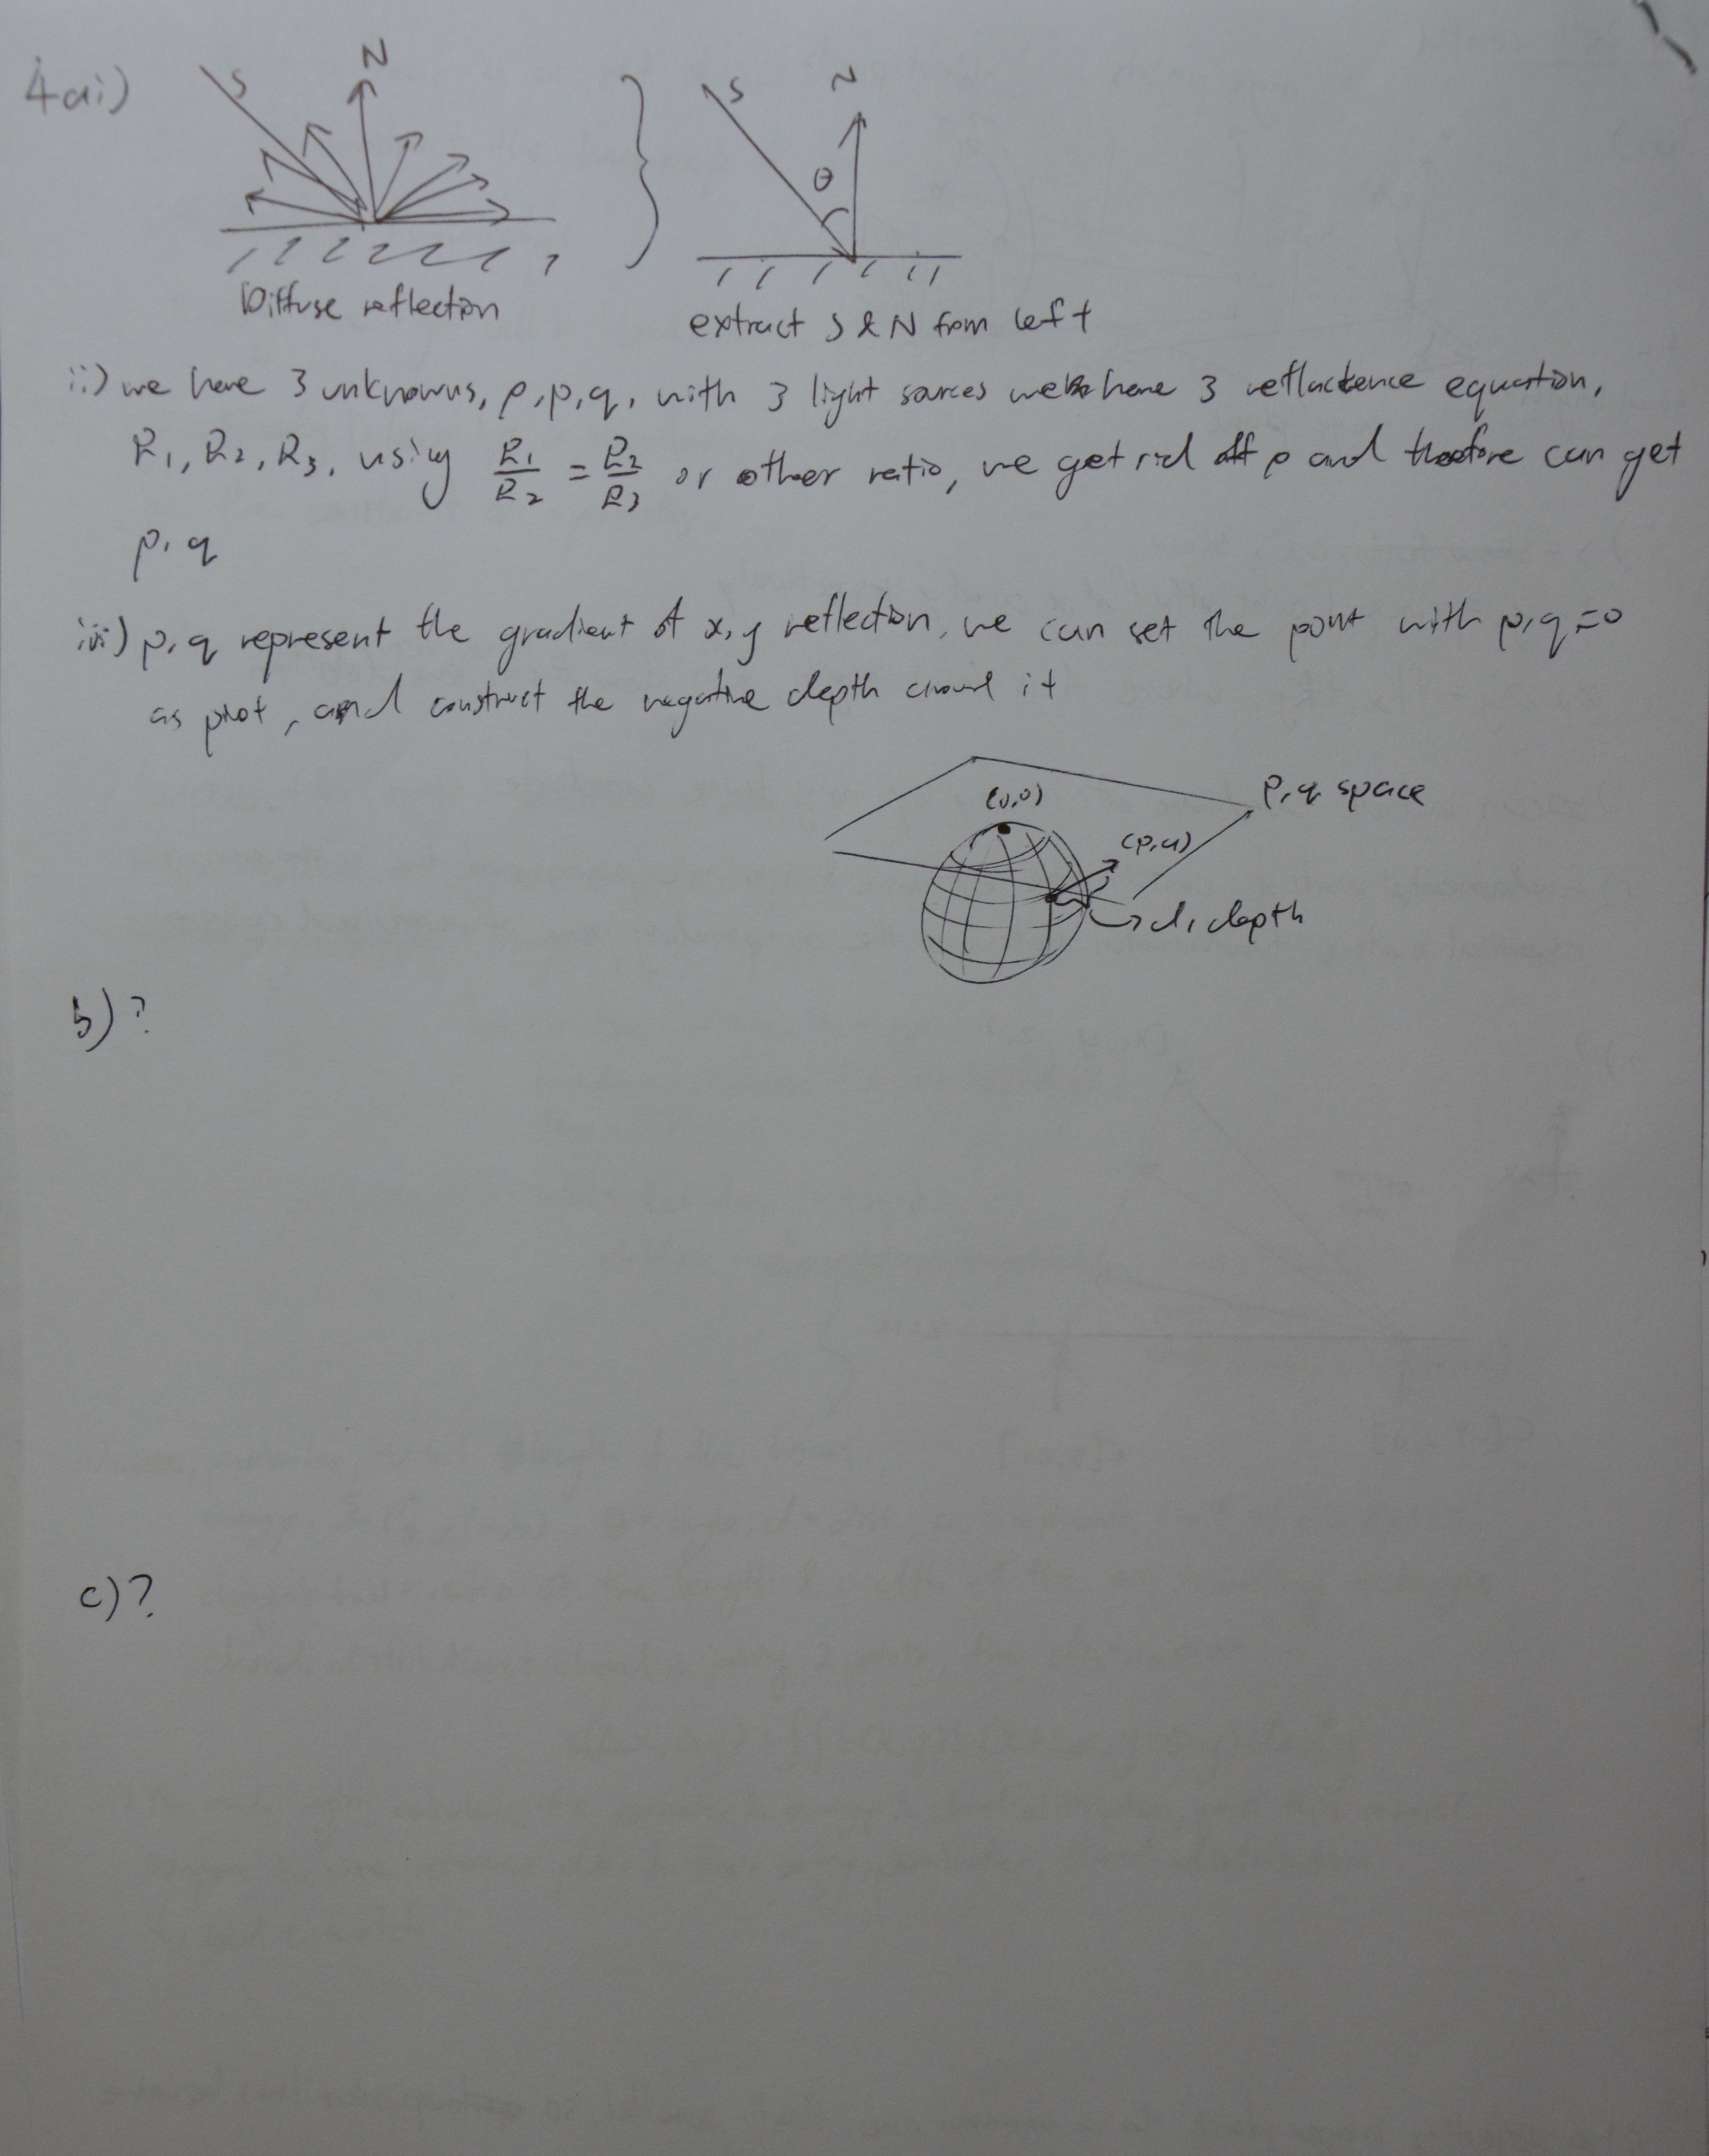 4ai)
S N
S N
θ
Diffuse reflection
extract S & N from left
ii) we have 3 unknowns, ρ, p, q, with 3 light sources we have 3 reflactence equation,
R₁, R₂, R₃, using R₁/R₂ = R₂/R₃ or other ratio, we get rid off ρ and therefore can get
p, q
iii) p, q represent the gradient of x, y reflection, we can set the point with p, q = 0
as pivot, and construct the negative depth around it
(0,0)
p, q space
(p, q)
d, depth
b) ?
c) ?